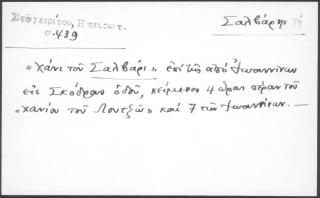 Σταγειρίτου, Ηπειρωτ. Σαλβάρης
σ. 439
"χάνι τοῦ Σαλβάρι" ἐπί τῆς ἀπό Ἰωαννίνων
εἰς Σκόδραν ὁδοῦ, κείμενον 4 ὥρας πέραν τοῦ
"χανίου τοῦ Λουτζῶ" καί 7 τῶν Ἰωαννίνων. —